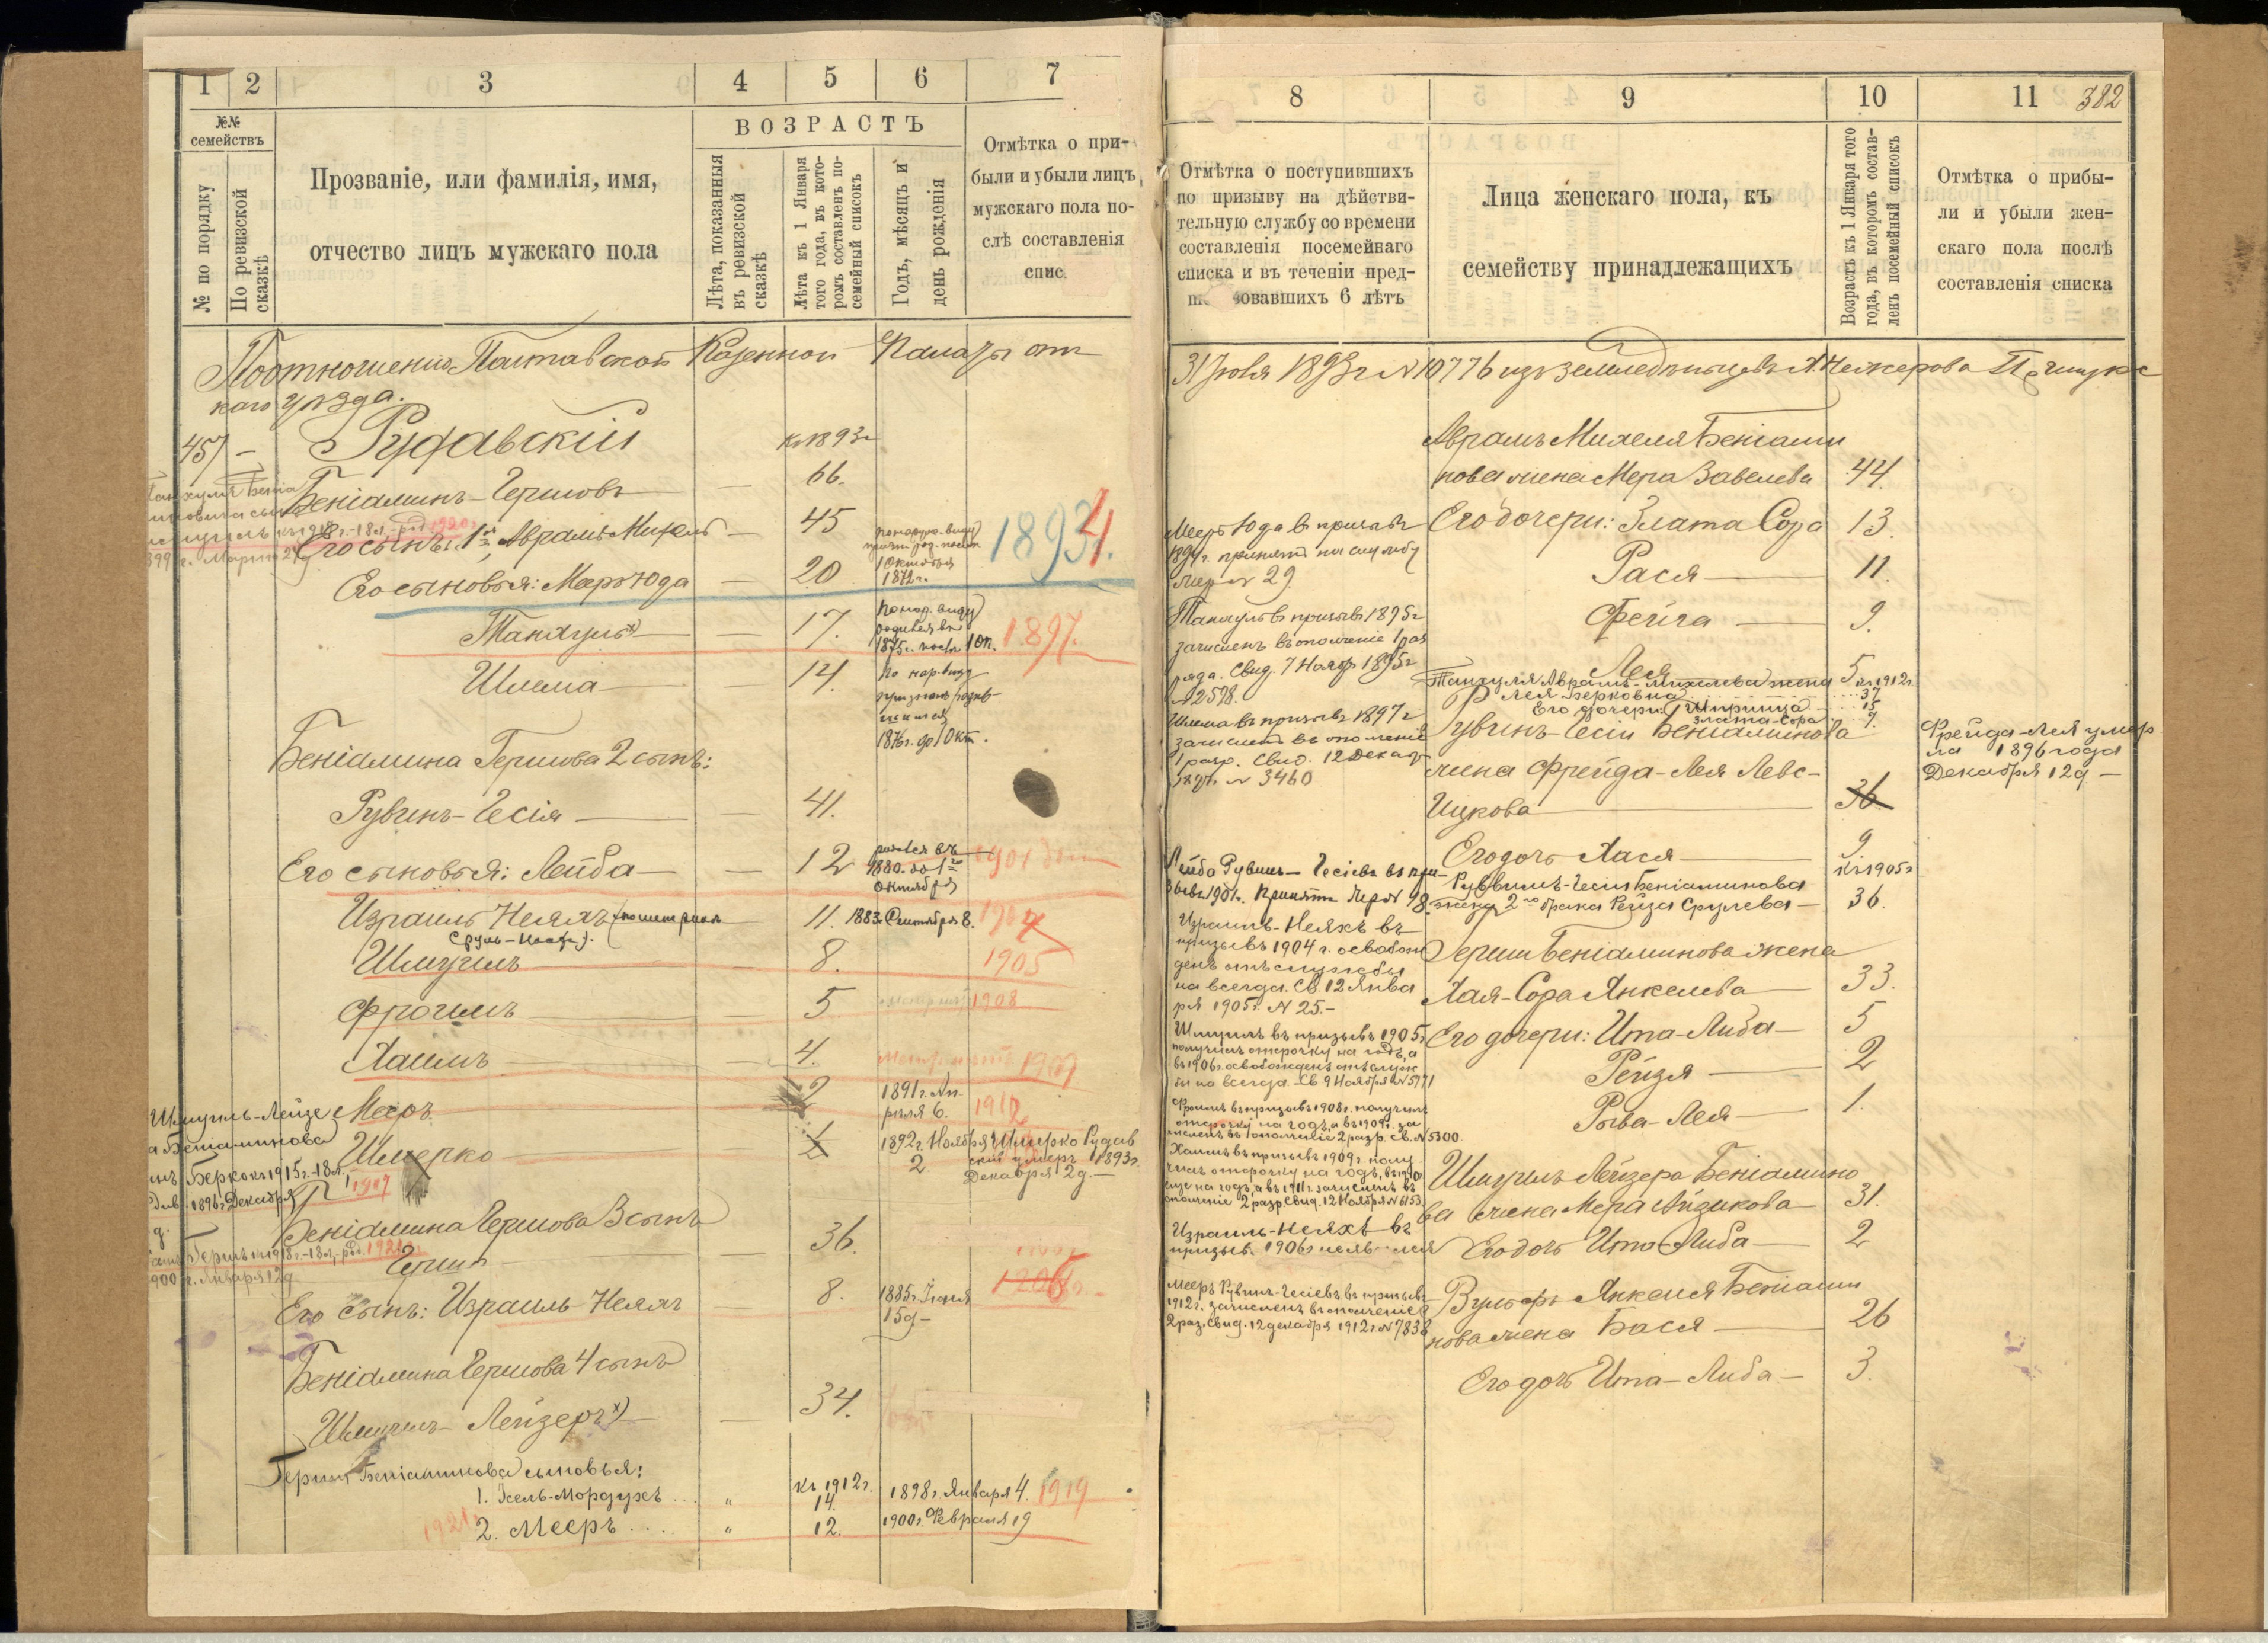 1 2 3 4 5 6 7
№№
семействъ
№ по порядку
По ревизской
сказкѣ
Прозваніе, или фамилія, имя,
отчество лицъ мужскаго пола
ВОЗРАСТЪ
Лѣта, показанныя
въ ревизской
сказкѣ
Лѣта къ 1 Января
того года, въ кото-
ромъ составленъ по-
семейный списокъ
Годъ, мѣсяцъ и
день рожденія
Отмѣтка о при-
были и убыли лицъ
мужскаго пола по-
слѣ составленія
спис.
По отношенію Полтавской Казенной Палаты отъ
каго уѣзда.
457 — Рудавскій къ 1893 г
Беніаминъ Гершовъ — 66.
Его сынъ: 1й Аврамъ Михель — 45
1893 4.
Его сыновья: Меръ Юда — 20
1 Октября
1872 г.
Танхумъ х) — 17.
По нар. виду
родился въ
1875 г. послѣ 1 Ок.
1897.
Шлема — 14.
По нар. виду
признанъ родив-
шимся
1876 г. до 1 Окт.
Беніамина Гершова 2 сынъ:
Рувинъ-Гесія — 41.
Его сыновья: Лейба — 12
родился въ
1880. до 1го
Октября
1901
Израиль Неяхъ (по метрикѣ 11. 1883 г. Сентября 8. 1904
Сруль-Ноахъ).
Шмуилъ — 8. 1905
Фроимъ — 5 1908
Хаимъ 4. 1909
Мееръ 2
1891 г. Ап-
рѣля 6.
1912
Шмерко 1
1892 г. Ноября
2.
Шмерко Рудав
скій умеръ 1893 г.
Декабря 2 д. —
Шмуилъ-Лейзе
а Беніаминова
инъ Берко къ 1915 г. - 18 л.
1896 г. Декабря
1917
Беніамина Гершова 3 сынъ
Гершъ — 36.
Его сынъ: Израиль Неяхъ 8.
1885 г. Іюня
15 д —
1906
Беніамина Гершова 4 сынъ
Шмуилъ - Лейзеръ х) — 34.
Герша Беніаминова сыновья:
1. Іхель-Мордухъ... " къ 1912 г. 14. 1898 г. Января 4. 1919
1921 2. Мееръ.... " 12. 1900 г. Февраля 19
8 9 10 11 382
Отмѣтка о поступившихъ
по призыву на дѣйстви-
тельную службу со времени
составленія посемейнаго
списка и въ теченіи пред-
шествовавшихъ 6 лѣтъ
Лица женскаго пола, къ
семейству принадлежащихъ
Возрастъ къ 1 Января того
года, въ которомъ состав-
ленъ посемейный списокъ
Отмѣтка о прибы-
ли и убыли жен-
скаго пола послѣ
составленія списка
31 Іюля 1893 г № 10776 изъ земледѣльцевъ
Аврамъ Михеля Беніами
нова жена Мера Завелева 44.
Его дочери: Злата Сора 13.
Рася — 11.
Фейга — 9.
Лея 5
Танхумя Аврамъ-Михелева жена къ 1912 г.
Лея Берковна 37
Его дочери: Шпринца 15
Злата-Сора 7.
Мееръ Юда въ призывъ
1894 г. принятъ на службу
Жер. № 29.
Танхумъ въ призывъ 1895 г
зачисленъ въ ополченіе 1 раз
ряда. Свид. 7 Нояб. 1895 г
№ 2578.
Шлема въ призывъ 1897 г
зачисленъ въ ополченіе
1 разр. Свид. 12 Декаб
1897 г № 3460
Рувинъ-Гесіи Беніаминова
жена Фрейда-Лея Левс-
Ицкова — 36
Фрейда-Лея умер
ла 1896 года
Декабря 12 д —
Его дочь Хася — 9
Лейба Рувинъ-Гесіевъ въ при-
зывъ 1901 г. Принятъ Жер № 98.
Руввинъ-Гесіи Беніаминова къ 1905 г
жена 2го брака Рейза Срулева — 36.
Израиль-Неяхъ въ
призывъ 1904 г. освобож
денъ отъ службы
на всегда. Св. 12 Янва
ря 1905 г. № 25. —
Герши Беніаминова жена
Хая-Сора Янкелева — 33.
Его дочери: Ита-Либа — 5
Рейзя — 2
Рыва-Лея — 1.
Шмуилъ въ призывъ 1905 г
получилъ отсрочку на годъ, а
въ 1906 г. освобожденъ отъ служ
бы на всегда. Св. 9 Ноября № 5771
Фроимъ въ призывъ 1908 г. получилъ
отсрочку на годъ, а въ 1909 г. за
численъ въ ополченіе 2 разр. Св. № 5300
Хаимъ въ призывъ 1909 г. полу
чилъ отсрочку на годъ, въ 1910
еще на годъ, а въ 1911 г. зачисленъ въ
ополченіе 2 разр. Свид. 12 Ноября № 6153
Израиль-Неяхъ въ
призыв. 1906 г. неяв
Мееръ Рувинъ-Гесіевъ въ призывъ
1912 г. зачисленъ въ ополченіе
2 раз. Свид. 12 декабря 1912 г № 7838
Шмуилъ Лейзера Беніамино
ва жена Мера Айзикова — 31.
Его дочь Ита-Либа — 2
Вульфъ Янкеля Беніами
нова жена Бася — 26
Его дочь Ита-Либа — 3.